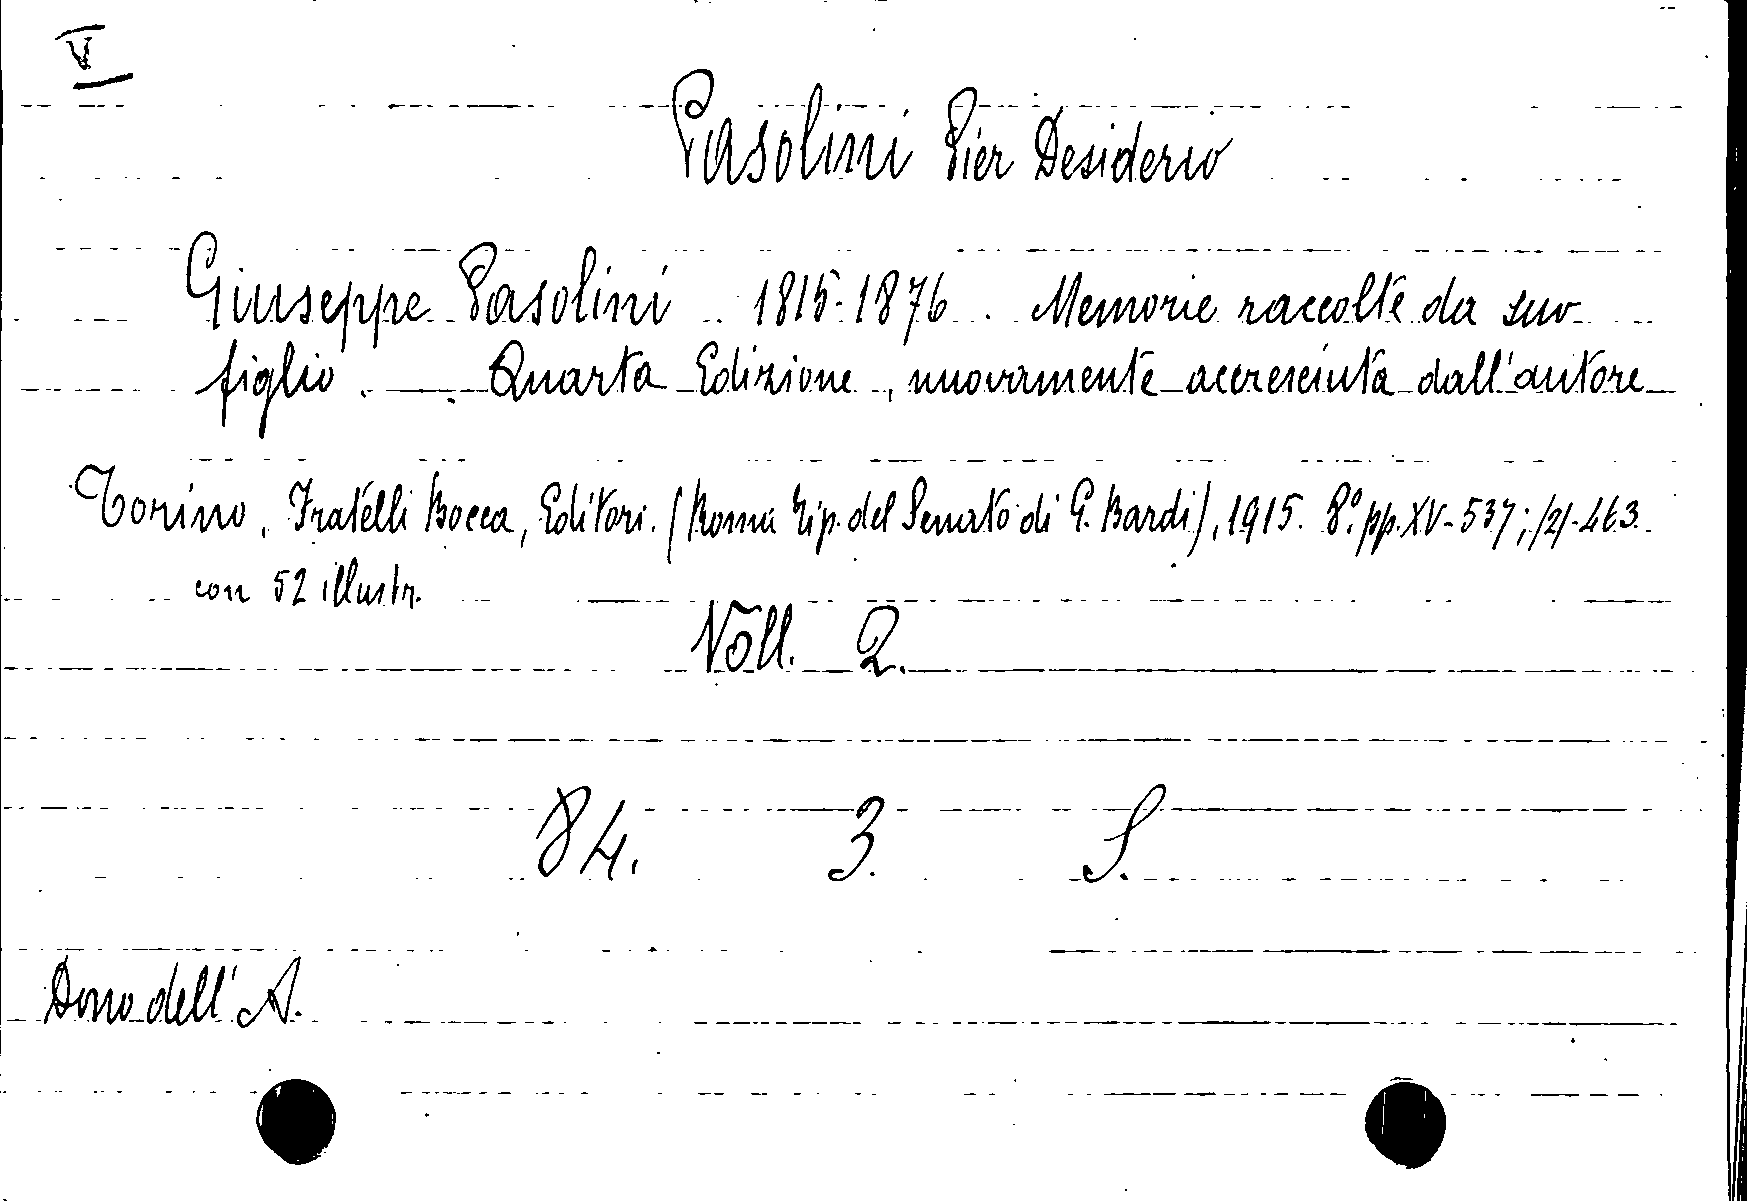 V
Pasolini Pier Desiderio
Giuseppe Pasolini . 1815-1876 . Memorie raccolte da suo
figlio . — . Quarta Edizione , nuovamente accresciuta dall'autore
Torino, Fratelli Bocca, Editori. (Roma Tip. del Senato di G. Bardi), 1915. 8.° pp. XV-537; /2/-463.
con 52 illustr.
Voll. 2.
84. 3. S.
Dono dell' A.